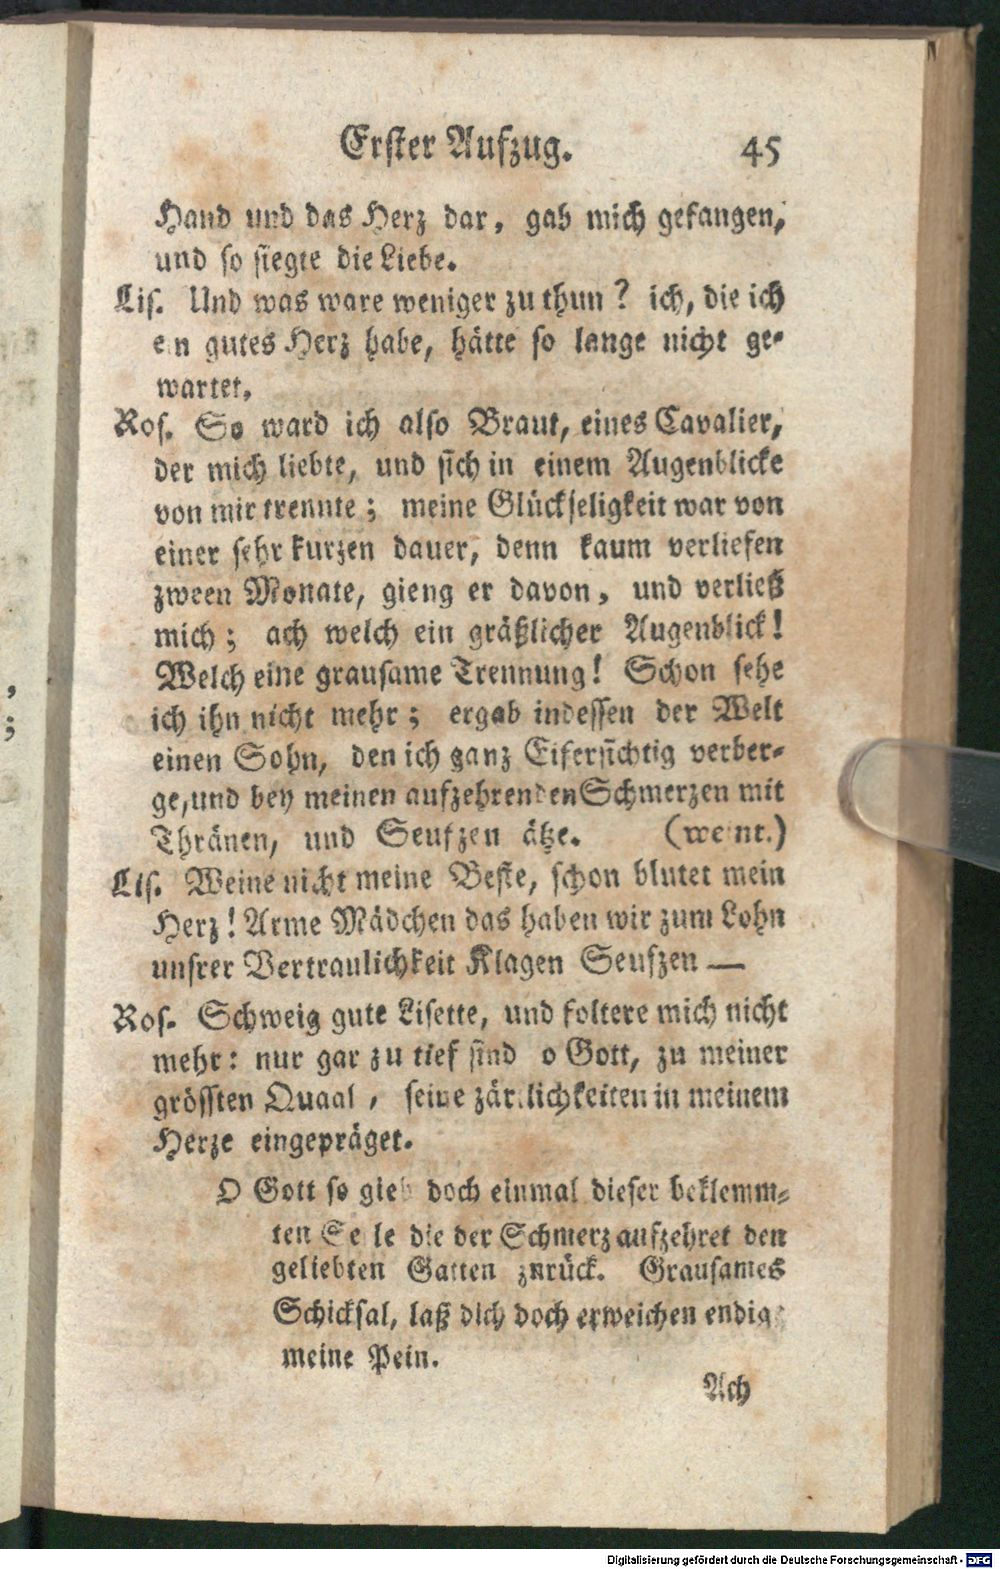 Erster Aufzug. 45
Hand und das Herz dar, gab mich gefangen,
und so siegte die Liebe.
Lis. Und was ware weniger zu thun? ich, die ich
ein gutes Herz habe, hätte so lange nicht ge-
wartet.
Ros. So ward ich also Braut, eines Cavalier,
der mich liebte, und sich in einem Augenblicke
von mir trennte; meine Glückseligkeit war von
einer sehr kurzen dauer, denn kaum verliefen
zween Monate, gieng er davon, und verließ
mich; ach welch ein gräßlicher Augenblick!
Welch eine grausame Trennung! Schon sehe
ich ihn nicht mehr; ergab indessen der Welt
einen Sohn, den ich ganz Eifersichtig verber-
ge, und bey meinen aufzehrenden Schmerzen mit
Thränen, und Seufzen ätze. (weint.)
Lis. Weine nicht meine Beste, schon blutet mein
Herz! Arme Mädchen das haben wir zum Lohn
unsrer Vertraulichkeit Klagen Seufzen —
Ros. Schweig gute Lisette, und foltere mich nicht
mehr: nur gar zu tief sind o Gott, zu meiner
grössten Quaal, seine zärtlichkeiten in meinem
Herze eingepräget.
O Gott so gieb doch einmal dieser beklemm-
ten Seele die der Schmerz aufzehret den
geliebten Gatten zurück. Grausames
Schicksal, laß dich doch erweichen endig
meine Pein.
Ach
Digitalisierung gefördert durch die Deutsche Forschungsgemeinschaft - DFG